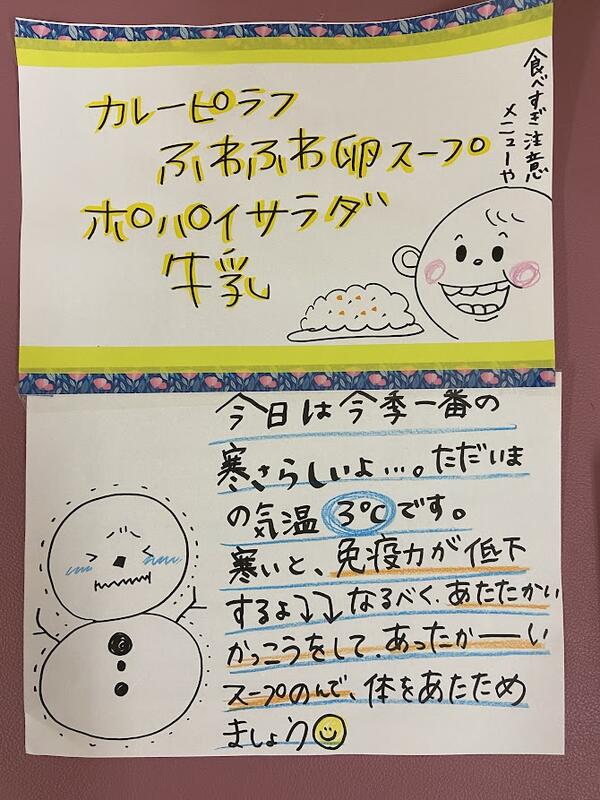 食べすぎ注意
メニューや
カレーピラフ
ふわふわ卵スープ
ポパイサラダ
牛乳
今日は今季一番の
寒さらしいよ…。ただいま
の気温 3℃です。
寒いと、免疫力が低下
するよ↴↴なるべく、あたたかい
かっこうをして、あったかーーい
スープのんで、体をあたため
ましょう